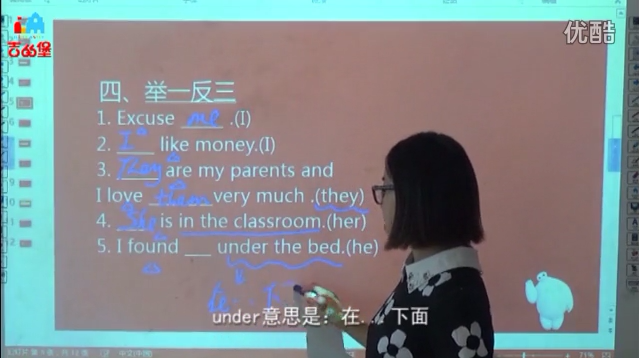 吉的堡
优酷
四、举一反三
1. Excuse me .(I)
2. I like money.(I)
3. They are my parents and
I love them very much .(they)
4. She is in the classroom.(her)
5. I found ___ under the bed.(he)
在... 下
under意思是：在... 下面